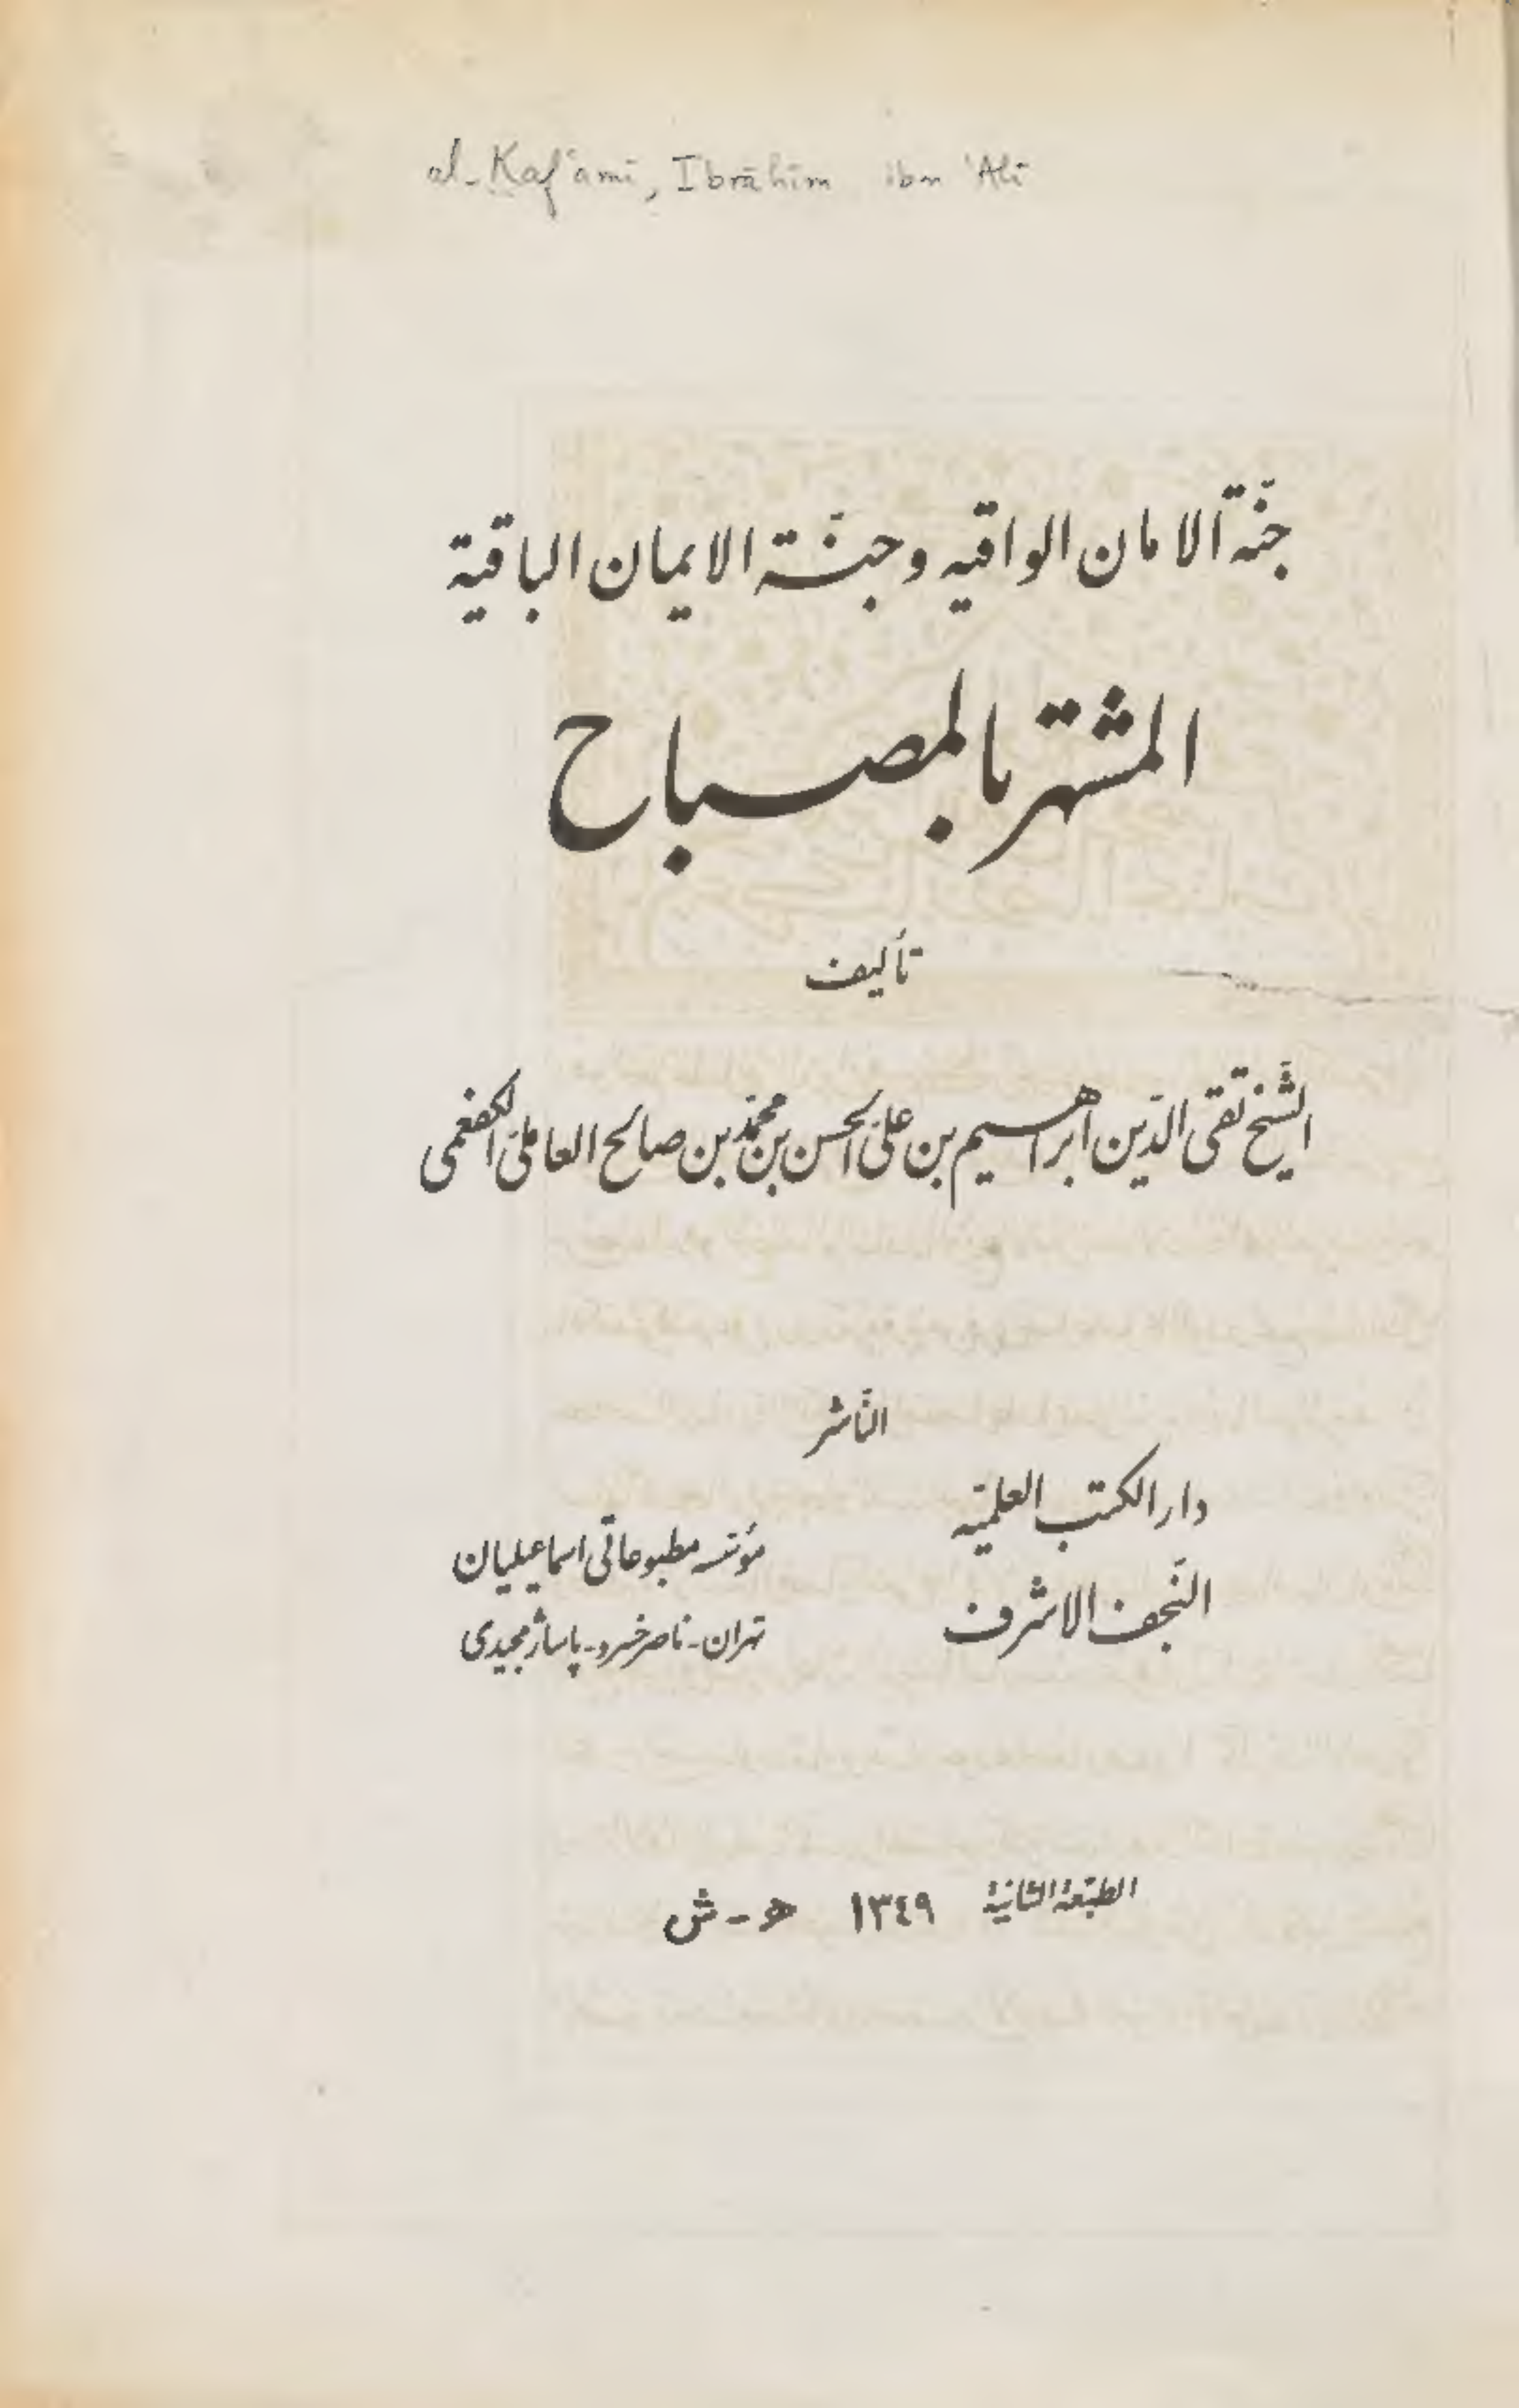 al-Kaf'amī, Ibrāhīm ibn 'Alī
جنّة الامان الواقيه وجنّة الايمان الباقية
المشتهر بالمصباح
تأليف
الشّيخ تقى الدّين ابراهيم بن علىّ الحسن بن محمّد بن صالح العاملىّ الكفعمى
النّاشر
دار الكتب العلميّه
النّجف الاشرف
مؤسّسه مطبوعاتى اسماعيليان
تهران - ناصر خسرو - پاساژ مجيدى
الطبّعة الثانية ١٣٤٩ هـ - ش